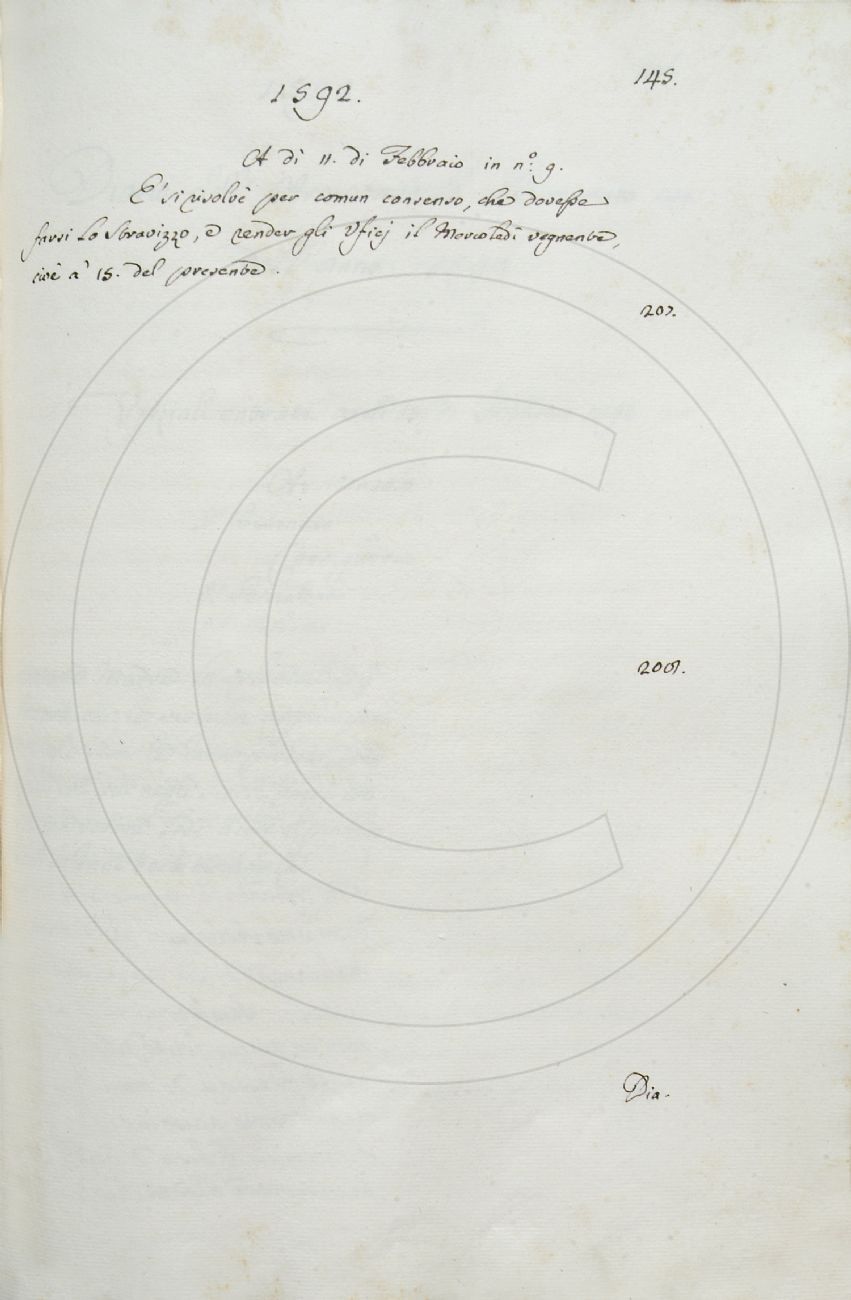 145.
1592.
A dì 11. di Febbraio in n.º 9.
E' si risolvè per comun consenso, che dovesse
farsi Lo Stravizzo, e render gli Ufizj il Mercoledì vegnente,
cioè a' 15. del presente.
207.
208.
Dia-